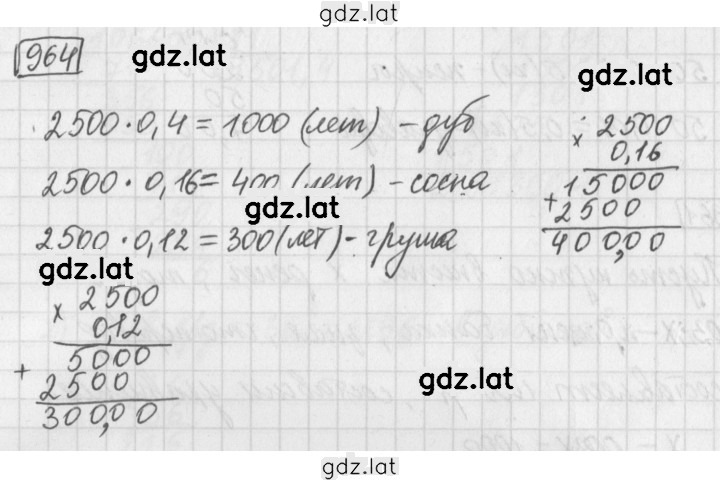 gdz.lat
964
gdz.lat
2500·0,4=1000 (лет) – дуб
2500·0,16=400 (лет) – сосна
gdz.lat
2500·0,12=300 (лет) – груша
gdz.lat
× 2500
0,12
+ 5000
2500
300,00
gdz.lat
× 2500
0,16
+ 15000
2500
400,00
gdz.lat
gdz.lat